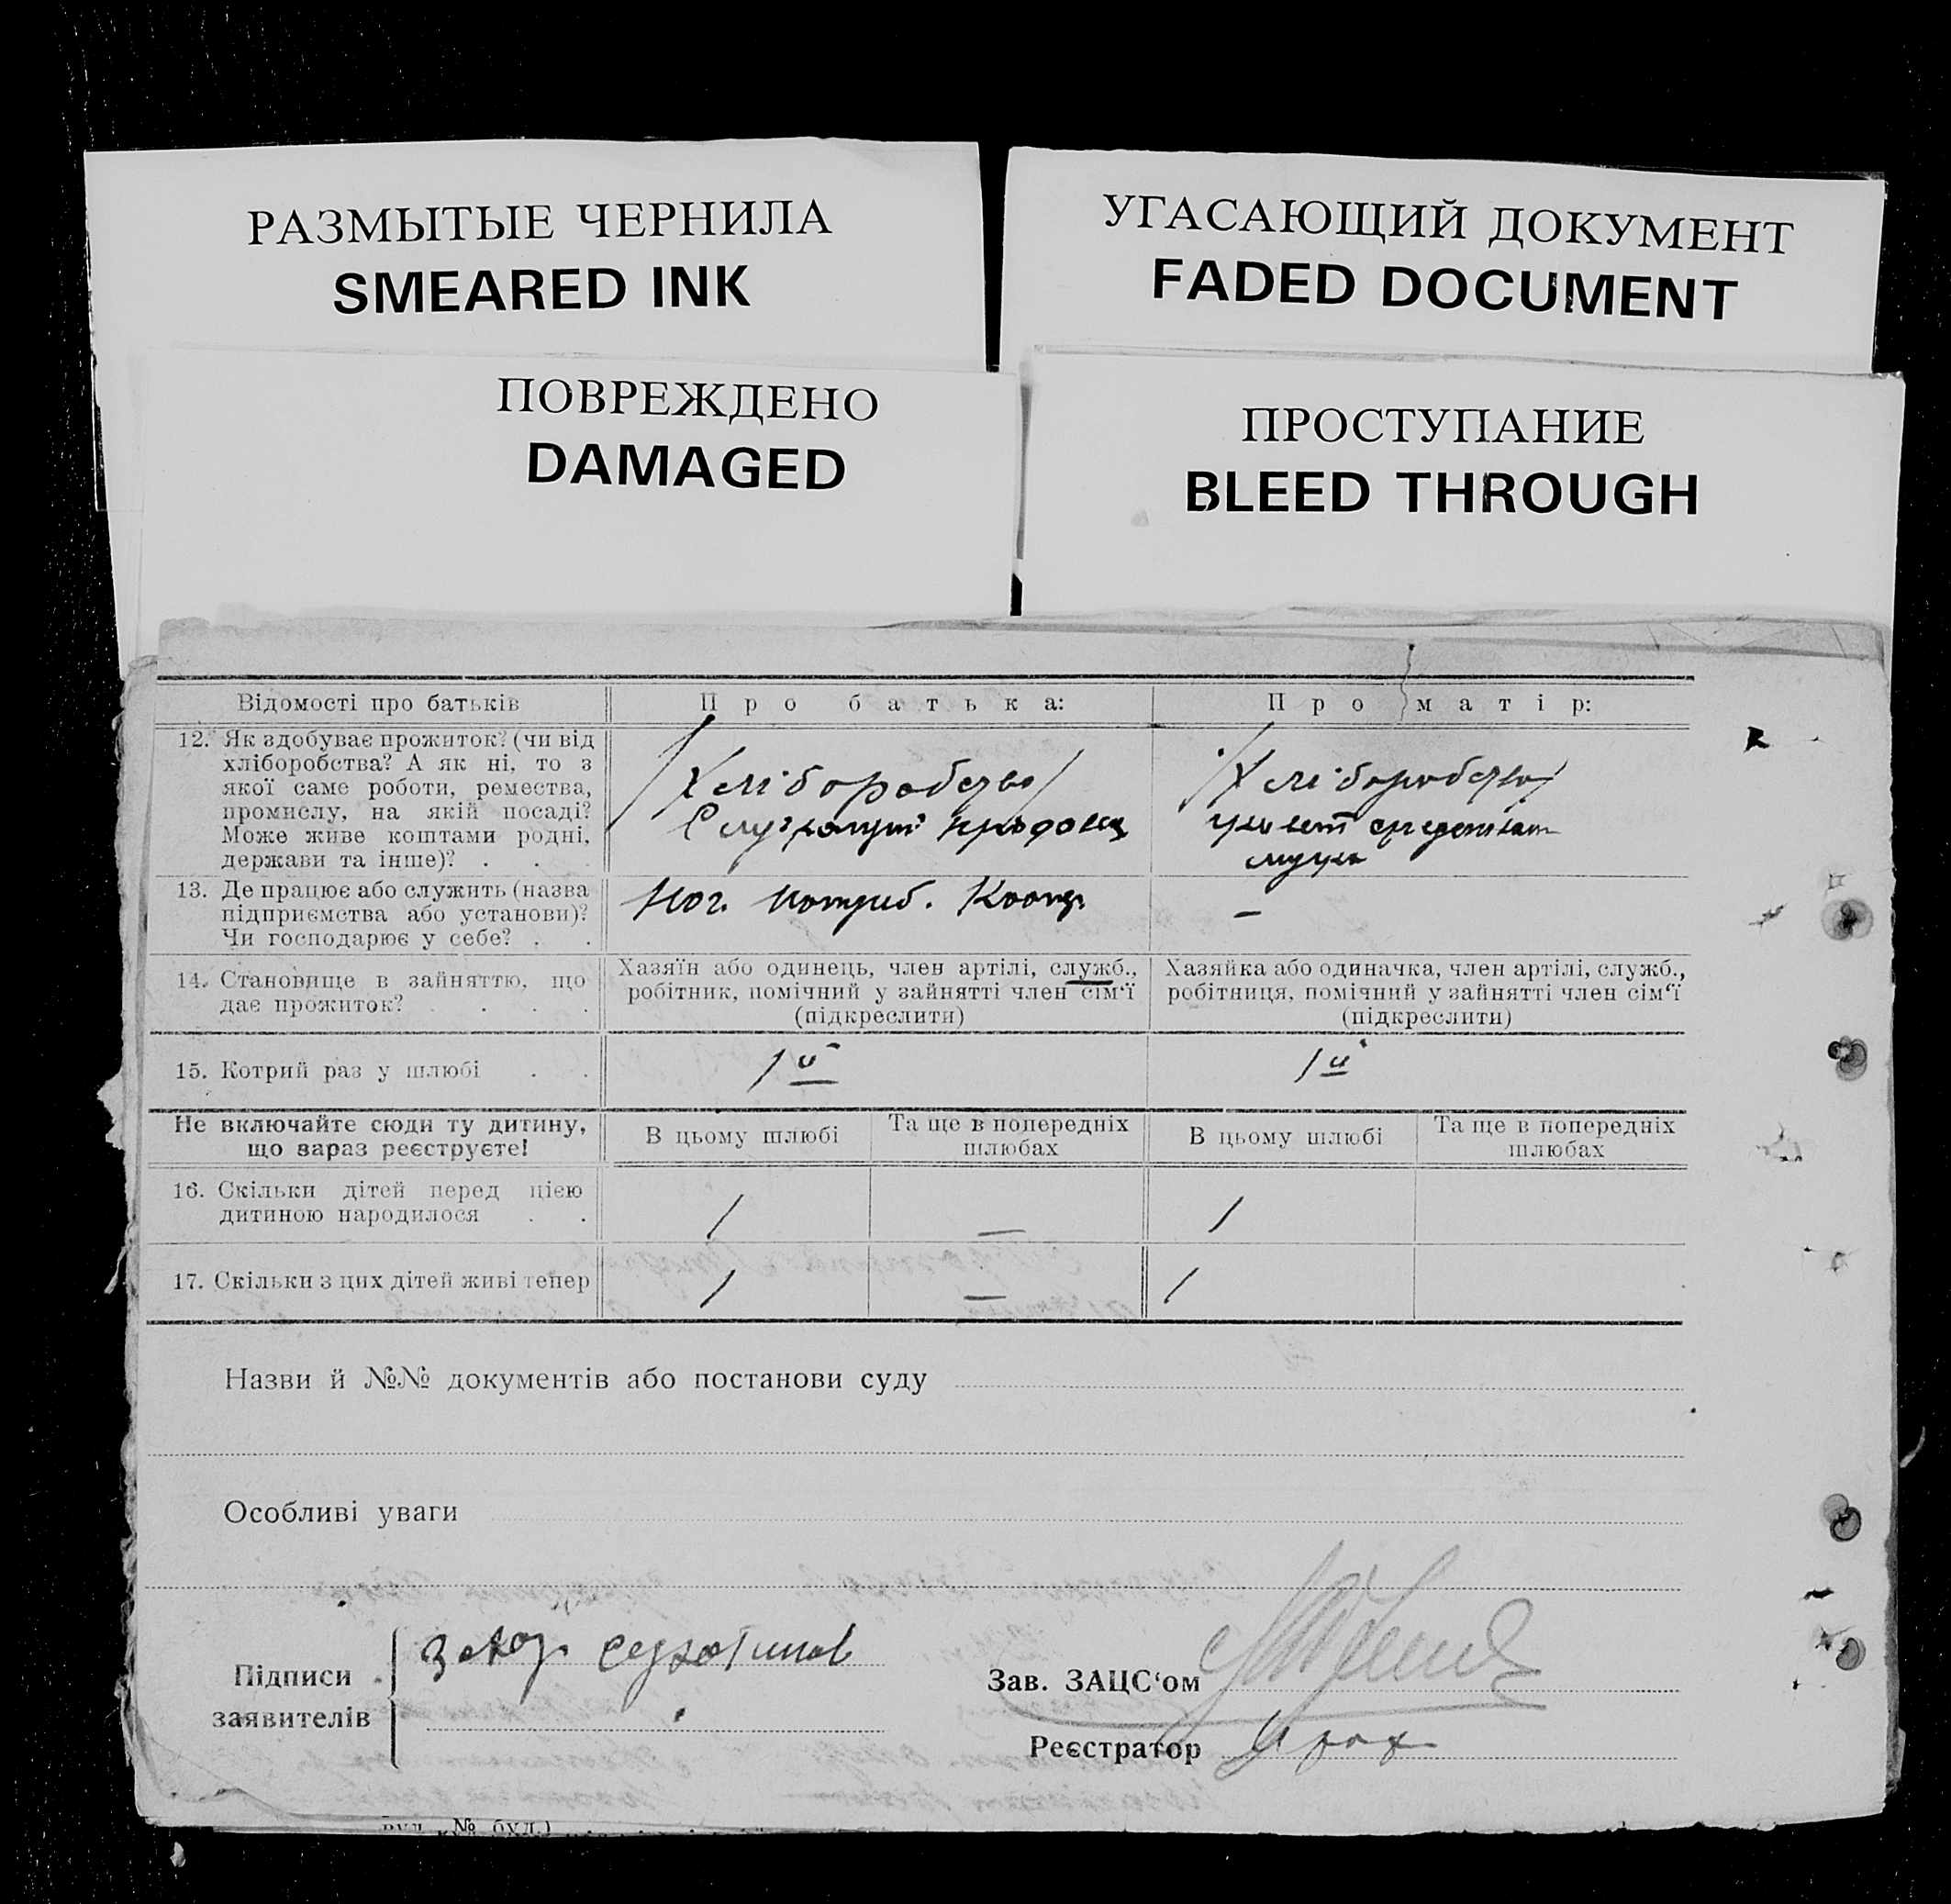 РАЗМЫТЫЕ ЧЕРНИЛА
SMEARED INK
УГАСАЮЩИЙ ДОКУМЕНТ
FADED DOCUMENT
ПОВРЕЖДЕНО
DAMAGED
ПРОСТУПАНИЕ
BLEED THROUGH
Відомості про батьків
Про батька:
Про матір:
12. Як здобуває прожиток? (чи від
хліборобства? А як ні, то з
якої саме роботи, ремества,
промислу, на якій посаді?
Може живе коштами родні,
держави та інше)? . . .
Хліборобство
Хліборобство
13. Де працює або служить (назва
підприємства або установи)?
Чи господарює у себе? . .
–
14. Становище в зайняттю, що
дає прожиток? . . . .
Хазяїн або одинець, член артілі, служб.,
робітник, помічний у зайнятті член сім‘ї
(підкреслити)
Хазяйка або одиначка, член артілі, служб.,
робітниця, помічний у зайнятті член сім‘ї
(підкреслити)
15. Котрий раз у шлюбі . .
1й
1й
Не включайте сюди ту дитину,
що зараз реєструєте!
В цьому шлюбі
Та ще в попередніх
шлюбах
В цьому шлюбі
Та ще в попередніх
шлюбах
16. Скільки дітей перед цією
дитиною народилося . .
1
—
1
17. Скільки з цих дітей живі тепер
1
—
1
Назви й №№ документів або постанови суду
Особливі уваги
Підписи
заявителів
Зав. ЗАЦС‘ом
Реєстратор
вул., № буд.)